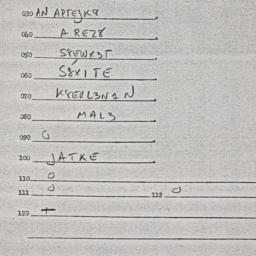 030 AN APTEJK9
040 A REZ8
050 S8EWX3T
060 S8XITE
070 K8EVL3N1N
080 MAL3
090 0
100 JATKE
110 0
111 0 112 0
120 +